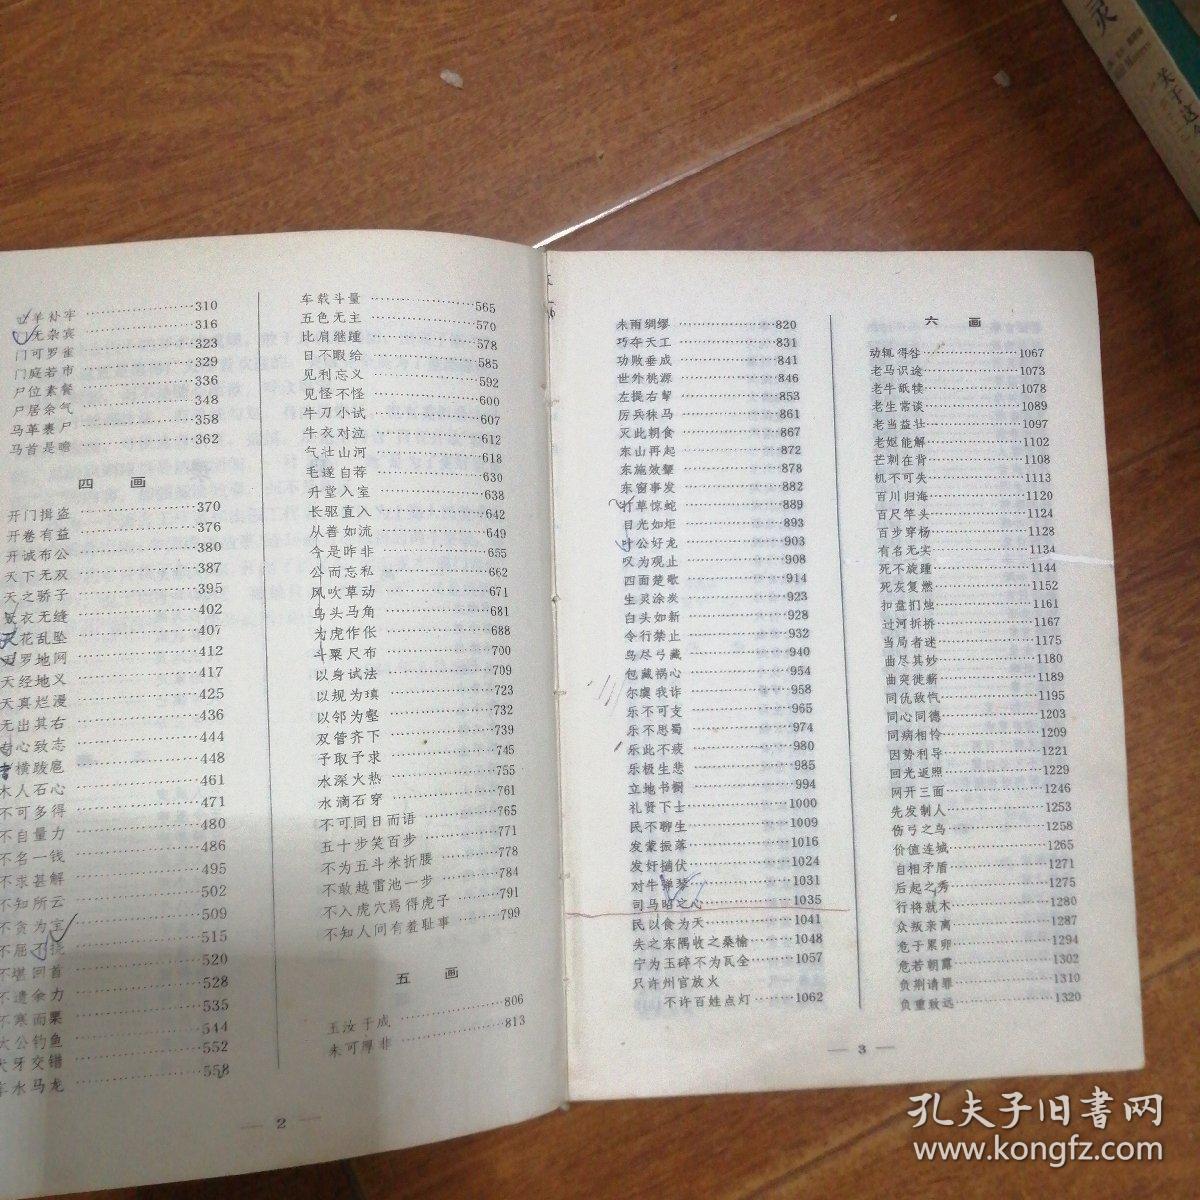 亡羊补牢 310
门无杂宾 316
门可罗雀 323
门庭若市 329
尸位素餐 336
尸居余气 348
马革裹尸 358
马首是瞻 362
四画
开门揖盗 370
开卷有益 376
开诚布公 380
天下无双 387
天之骄子 395
天衣无缝 402
天花乱坠 407
天罗地网 412
天经地义 417
天真烂漫 425
无出其右 436
专心致志 444
专横跋扈 448
木人石心 461
不可多得 471
不自量力 480
不名一钱 486
不求甚解 495
不知所云 502
不贪为宝 509
不屈不挠 515
不堪回首 520
不遗余力 528
不寒而栗 535
太公钓鱼 544
犬牙交错 552
车水马龙 558
车载斗量 565
五色无主 570
比肩继踵 578
目不暇给 585
见利忘义 592
见怪不怪 600
牛刀小试 607
牛衣对泣 612
气壮山河 618
毛遂自荐 630
升堂入室 638
长驱直入 642
从善如流 649
今是昨非 655
公而忘私 662
风吹草动 671
乌头马角 681
为虎作伥 688
斗粟尺布 700
以身试法 709
以规为瑱 723
以邻为壑 732
双管齐下 739
予取予求 745
水深火热 755
水滴石穿 761
不可同日而语 765
五十步笑百步 771
不为五斗米折腰 778
不敢越雷池一步 784
不入虎穴焉得虎子 791
不知人间有羞耻事 799
五画
玉汝于成 806
未可厚非 813
— 2 —
未雨绸缪 820
巧夺天工 831
功败垂成 841
世外桃源 846
左提右挈 853
厉兵秣马 861
灭此朝食 867
东山再起 872
东施效颦 878
东窗事发 882
打草惊蛇 889
目光如炬 893
叶公好龙 903
叹为观止 908
四面楚歌 914
生灵涂炭 923
白头如新 928
令行禁止 932
鸟尽弓藏 940
包藏祸心 954
尔虞我诈 958
乐不可支 965
乐不思蜀 974
乐此不疲 980
乐极生悲 985
立地书橱 994
礼贤下士 1000
民不聊生 1009
发蒙振落 1016
发奸擿伏 1024
对牛弹琴 1031
司马昭之心 1035
民以食为天 1041
失之东隅收之桑榆 1048
宁为玉碎不为瓦全 1057
只许州官放火
不许百姓点灯 1062
六画
动辄得咎 1067
老马识途 1073
老牛舐犊 1078
老生常谈 1089
老当益壮 1097
老妪能解 1102
芒刺在背 1108
机不可失 1113
百川归海 1120
百尺竿头 1124
百步穿杨 1128
有名无实 1134
死不旋踵 1144
死灰复燃 1152
扣盘扪烛 1161
过河拆桥 1167
当局者迷 1175
曲尽其妙 1180
曲突徙薪 1189
同仇敌忾 1195
同心同德 1203
同病相怜 1209
因势利导 1221
回光返照 1229
网开三面 1246
先发制人 1253
伤弓之鸟 1258
价值连城 1265
自相矛盾 1271
后起之秀 1275
行将就木 1280
众叛亲离 1287
危于累卵 1294
危若朝露 1302
负荆请罪 1310
负重致远 1320
— 3 —
灵
关于这
孔夫子旧书网
www.kongfz.com